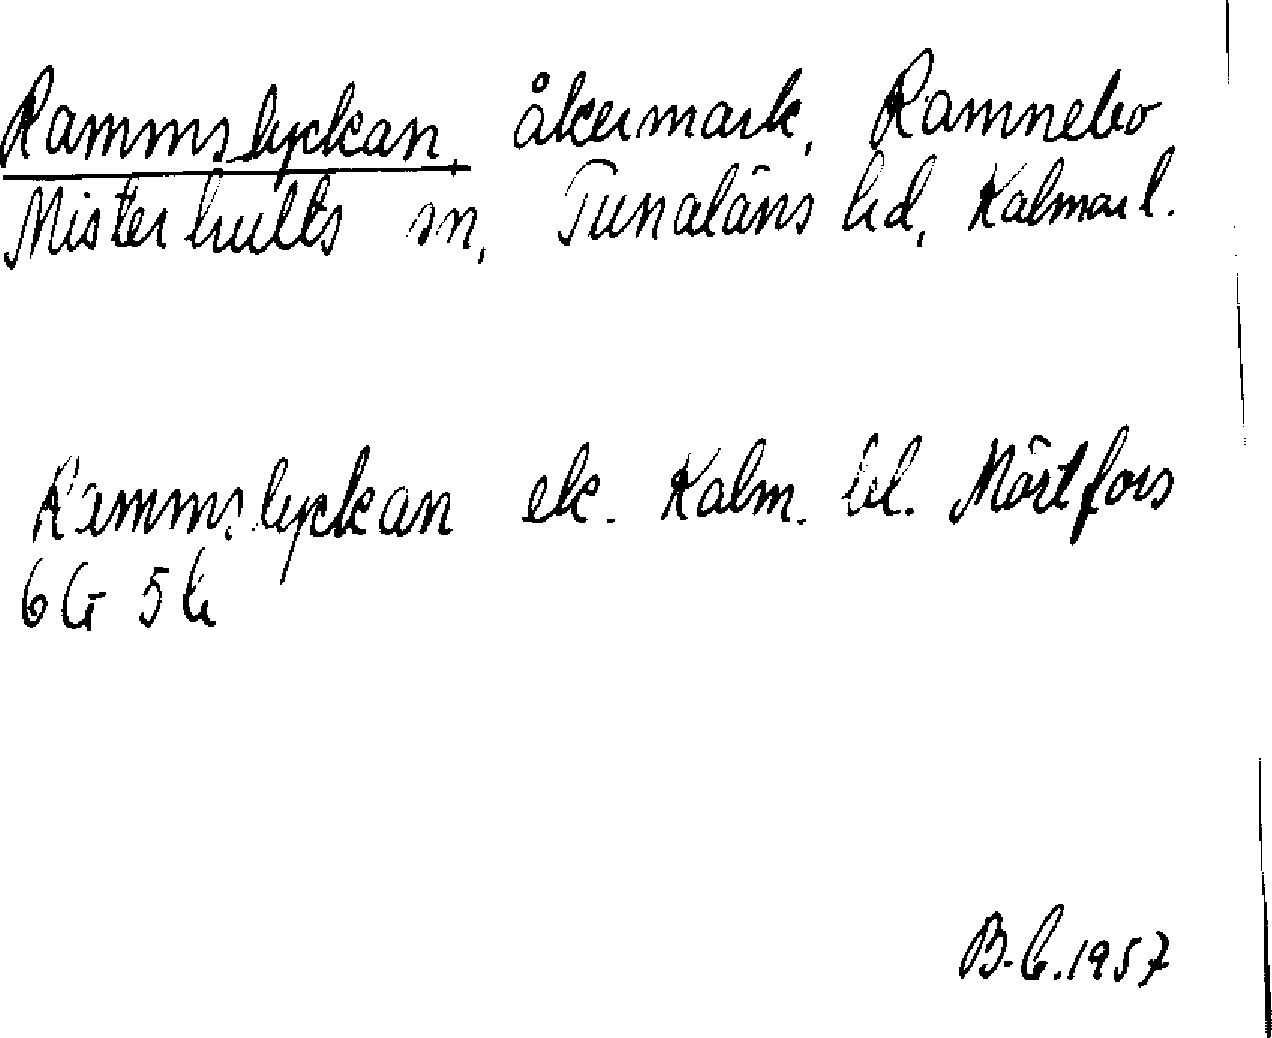 Rammslyckan, åkermark, Ramnebo
Misterhults sn, Tunaläns hd, Kalmar l.
Rammslyckan ek. Kalm. bl. Mörtfors
6G 5h
B.G.1957